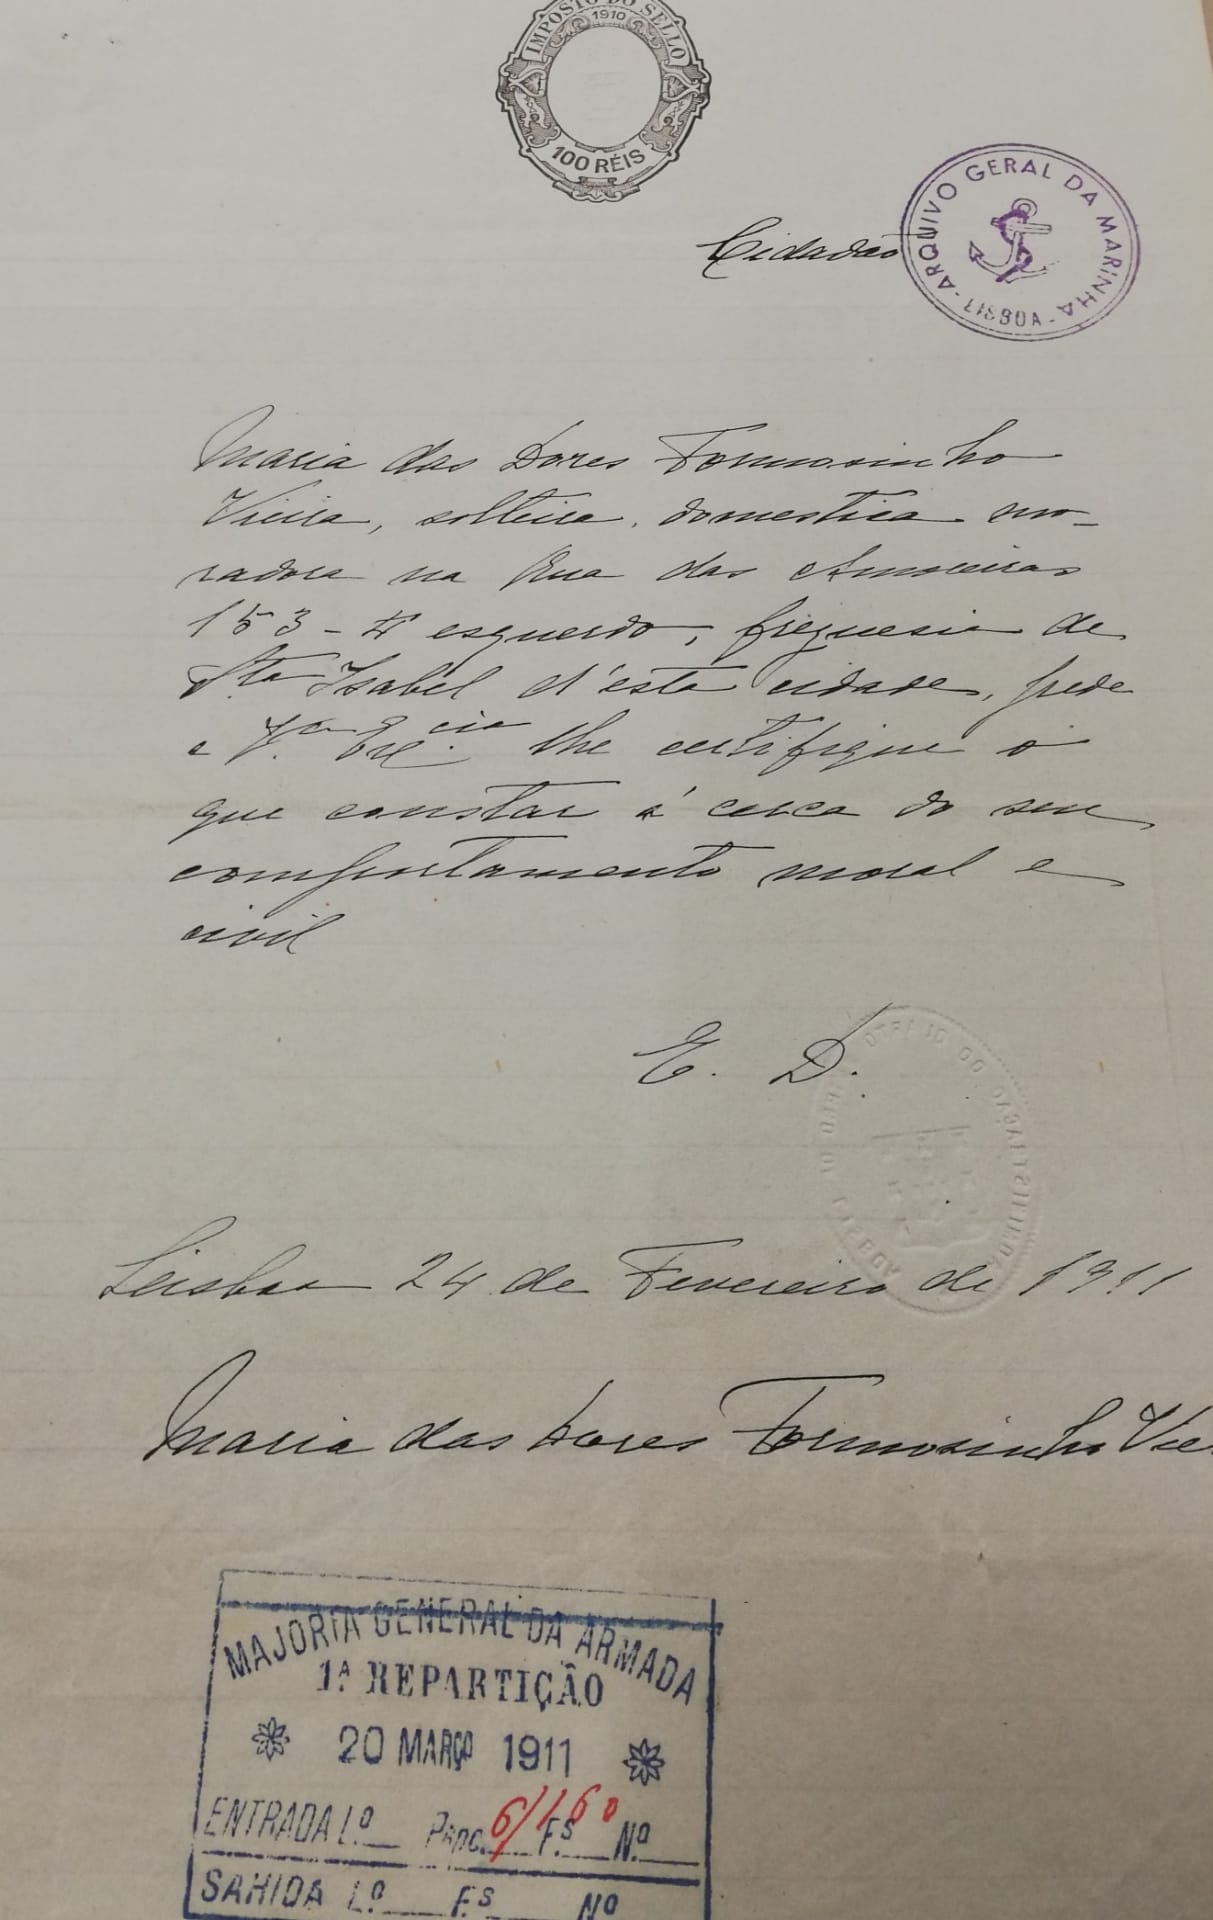 IMPOSTO DO SELLO
1910
100 RÉIS
ARQUIVO GERAL DA MARINHA
Cidadão
Maria das Dores Formosinho
Vieira, solteira, domestica mo-
radora na Rua das Amoreiras
153 - esquerdo, freguesia de
Sta Isabel d'esta cidade, pede
a V. Excia lhe certifique o
que constar á cerca do seu
comportamento moral e
civil
E. D.
Lisboa 24 de Fevereiro de 1911
Maria das Dores Formosinho Vie
MAJORIA GENERAL DA ARMADA
1ª REPARTIÇÃO
20 MARÇO 1911
ENTRADA L.º Proc. 6/160 F.s N.º
SAHIDA L.º F.s Nº